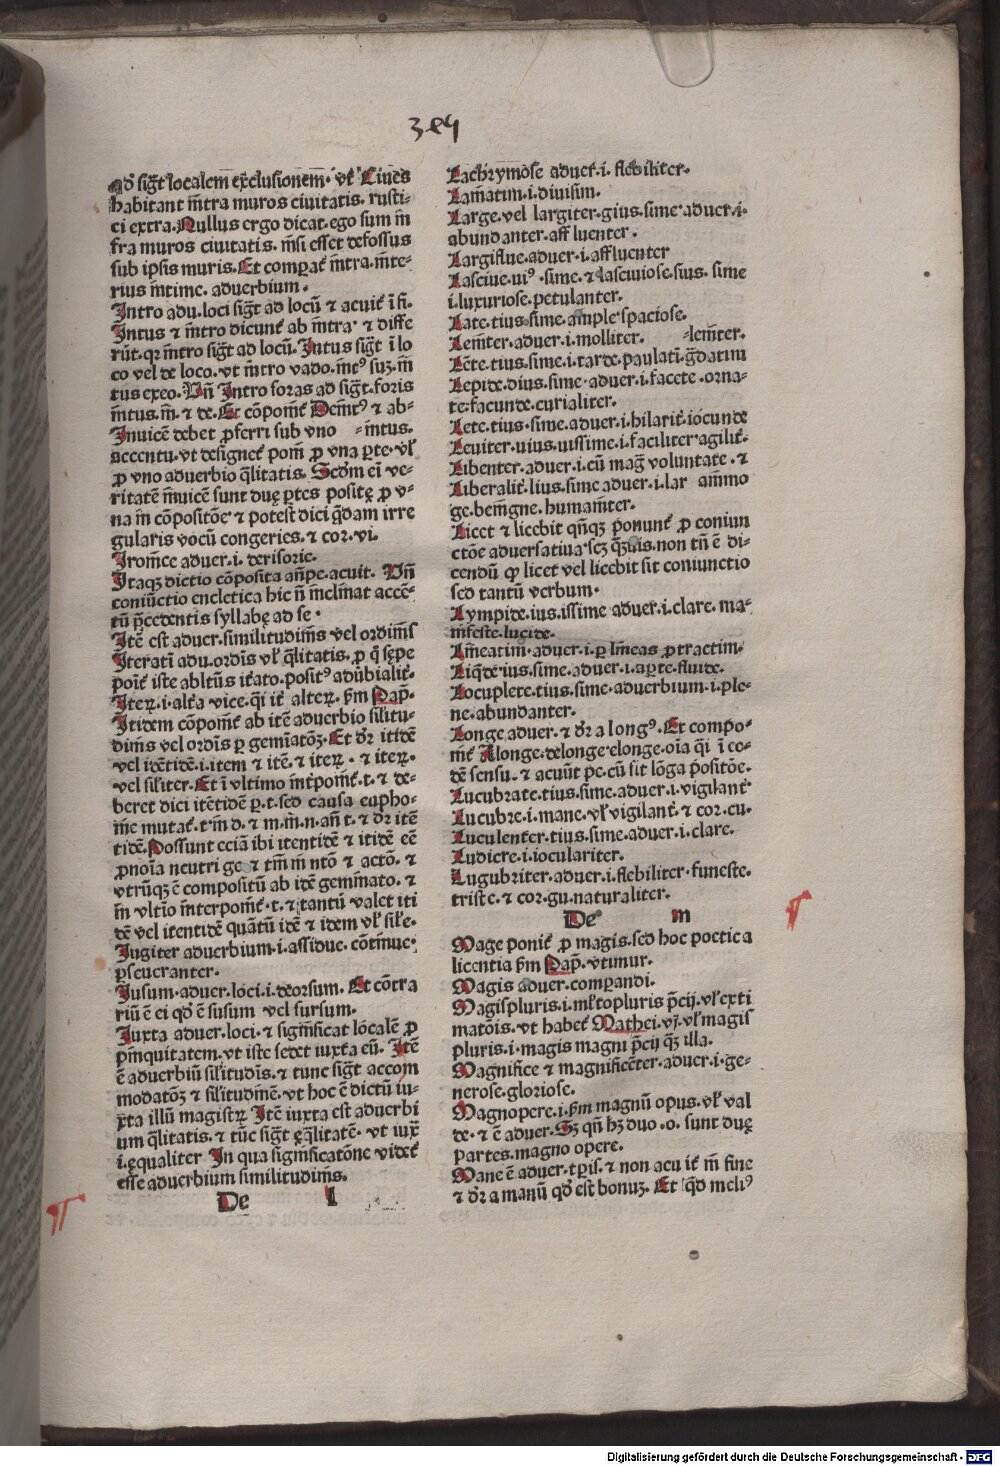 389
qd̄ sigt̄ localem exclusionem. vt̄ Ciues
habitant intra muros ciuitatis. rusti-
ci extra. Nullus ergo dicat. ego sum in
fra muros ciuitatis. nisi esset defossus
sub ipsis muris. Et comꝑat̄ intra. inte-
rius intime. aduerbium.
Intro adu. loci sigt̄ ad locū ⁊ acuit̄ ī fi.
Intus ⁊ intro dicunt̄ ab intra. ⁊ diffe
rūt. qꝛ intro sigt̄ ad locū. Intus sigt̄ ī lo
co vel de loco. vt intro vado. intꝰ suꝫ. in
tus exeo. Vn̄ Intro foras ad sigt̄. foris
intus. in. ⁊ de. Et cōponit̄ Deintꝰ ⁊ ab-
Inuicē debet ꝓferri sub vno -intus.
accentu. vt designet̄ poni ꝓ vna ꝑte. vl̄
ꝓ vno aduerbio q̄litatis. Scdm ei ve-
ritatē inuicē sunt duę ꝑtes positę ꝓ v-
na in cōpositōe ⁊ potest dici q̄dam irre
gularis vocū congeries. ⁊ cor. vi.
Ironice aduer. i. derisorie.
Itaqꝫ dictio cōposita an̄pe. acuit. Vn̄
coniūctio encletica hic n̄ inclinat accē-
tū p̄cedentis syllabę ad se.
Itē est aduer. similitudinis vel ordinis
Iterati adu. ordīs vl̄ q̄litatis. ꝓ q̄ sępe
poit̄ iste abltūs itato. positꝰ adūbialit̄.
Iteꝝ. i. alt̄a vice. qi it̄ alteꝝ. ẞm Pap̄.
Itidem cōponit̄ ab itē aduerbio silitu-
dinis vel ordīs ꝑ geminatōꝫ. Et dr̄ itidē
vel idētidē. i. item ⁊ itē. ⁊ iteꝝ. ⁊ iteꝝ.
vel siliter. Et ī vltimo int̄ponit̄. t. ⁊ de-
beret dici itētidē ꝑ. t. sed causa eupho-
nie mutat̄. t. in d. ⁊ m. in. n. an̄ t. ⁊ dr̄ itē
tidē. Possunt eciā ibi itentidē ⁊ itidē eē
ꝓnoīa neutri ge ⁊ tm̄ in ntō ⁊ actō. ⁊
vtrūqꝫ ē compositū ab idē geminato. ⁊
in vltīo interponit̄. t. ⁊ tantū valet iti
dē vel itentidē quātū idē ⁊ idem vl̄ sile.
Iugiter aduerbium. i. assidue. cōtinue.
ꝑseueranter.
Iusum. aduer. loci. i. deorsum. Et cōtra
riū ē ei qd̄ ē susum vel sursum.
Iuxta aduer. loci. ⁊ significat localē ꝓ
pinquitatem. vt iste sedet iuxta eū. Itē
ē aduerbiū silitudīs. ⁊ tunc sigt̄ accom
modatōꝫ ⁊ silitudinē. vt hoc ē dictū iu-
xta illū magistꝝ Itē iuxta est aduerbi
um q̄litatis. ⁊ tūc sigt̄ ęq̄litatē. vt iux̄
i. ęqualiter In qua significatōne videt̄
esse aduerbium similitudinis.
De l
Lachrymose aduer. i. flebiliter.
Laniatim. i. diuisim.
Large. vel largiter. gius. sime. aduer. i.
abundanter. affluenter.
Largiflue. aduer. i. affluenter
Lasciue. uiꝰ. sime. ⁊ lasciuiose. sius. sime
i. luxuriose. petulanter.
Late. tius. sime. ample. spaciose.
Leniter. aduer. i. molliter. -leniter.
Lēte. tius. sime. i. tarde. paulati. ḡdatim
Lepide. dius. sime. aduer. i. facete. orna-
te. facunde. curialiter.
Lete. tius. sime. aduer. i. hilarit̄. iocunde
Leuiter. uius. uissime. i. faciliter. agilit̄.
Libenter. aduer. i. cū maḡ voluntate. ⁊
Liberalit̄. lius. sime aduer. i. lar animo
ge. benigne. humaniter.
Licet ⁊ licebit qn̄qꝫ p̄onunt̄ ꝓ coniun
ctōe aduersatiua. scꝫ q̄uis. non tn̄ ē di-
cendū ꝙ licet vel licebit sit coniunctio
sed tantū verbum.
Lympide. ius. issime aduer. i. clare. ma-
nifeste. lucide.
Lineatim. aduer. i. ꝑ lineas ꝓtractim.
Liq̄de. ius. sime. aduer. i. aꝑte. fluide.
Locuplete. tius. sime. aduerbium. i. ple-
ne. abundanter.
Longe aduer. ⁊ dr̄ a longꝰ. Et compo-
nit̄ Alonge. delonge. elonge. oīa qi ī eo-
dē sensu. ⁊ acuūt pe. cū sit lōga p̄positōe.
Lucubrate. tius. sime. aduer. i. vigilant̄
Lucubre. i. mane. vl̄ vigilant̄. ⁊ cor. cu.
Luculenter. tius. sime. aduer. i. clare.
Ludicre. i. ioculariter.
Lugubriter. aduer. i. flebiliter. funeste.
triste. ⁊ cor. gu. naturaliter.
De m
Mage ponit̄ ꝓ magis. sed hoc poetica
licentia ẞm Pap̄. vtimur.
Magis aduer. comꝑandi.
Magispluris. i. ml̄topluris p̄cij. vl̄ exti
matōis. vt habet̄ Mathei. vj. vl̄ magis
pluris. i. magis magni p̄cij qꝫ illa.
Magnifice ⁊ magnificēter. aduer. i. ge-
nerose. gloriose.
Magnopere. i. ẞm magnū opus. vl̄ val
de. ⁊ ē aduer. Sꝫ qn̄ hꝫ duo. o. sunt duę
partes. magno opere.
Mane ē aduer. tp̄is. ⁊ non acuit̄ in fine
⁊ dr̄ a manū qd̄ est bonuꝫ. Et qd̄ meliꝰ
Digitalisierung gefördert durch die Deutsche Forschungsgemeinschaft - DFG